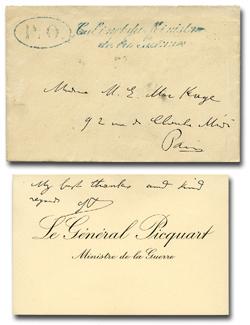 P.O
Cabinet du Ministre
de la Guerre
M. E. Mac Kaye
92 rue du Cherche Midi
Paris
My best thanks and kind
regards
Le Général Picquart
Ministre de la Guerre